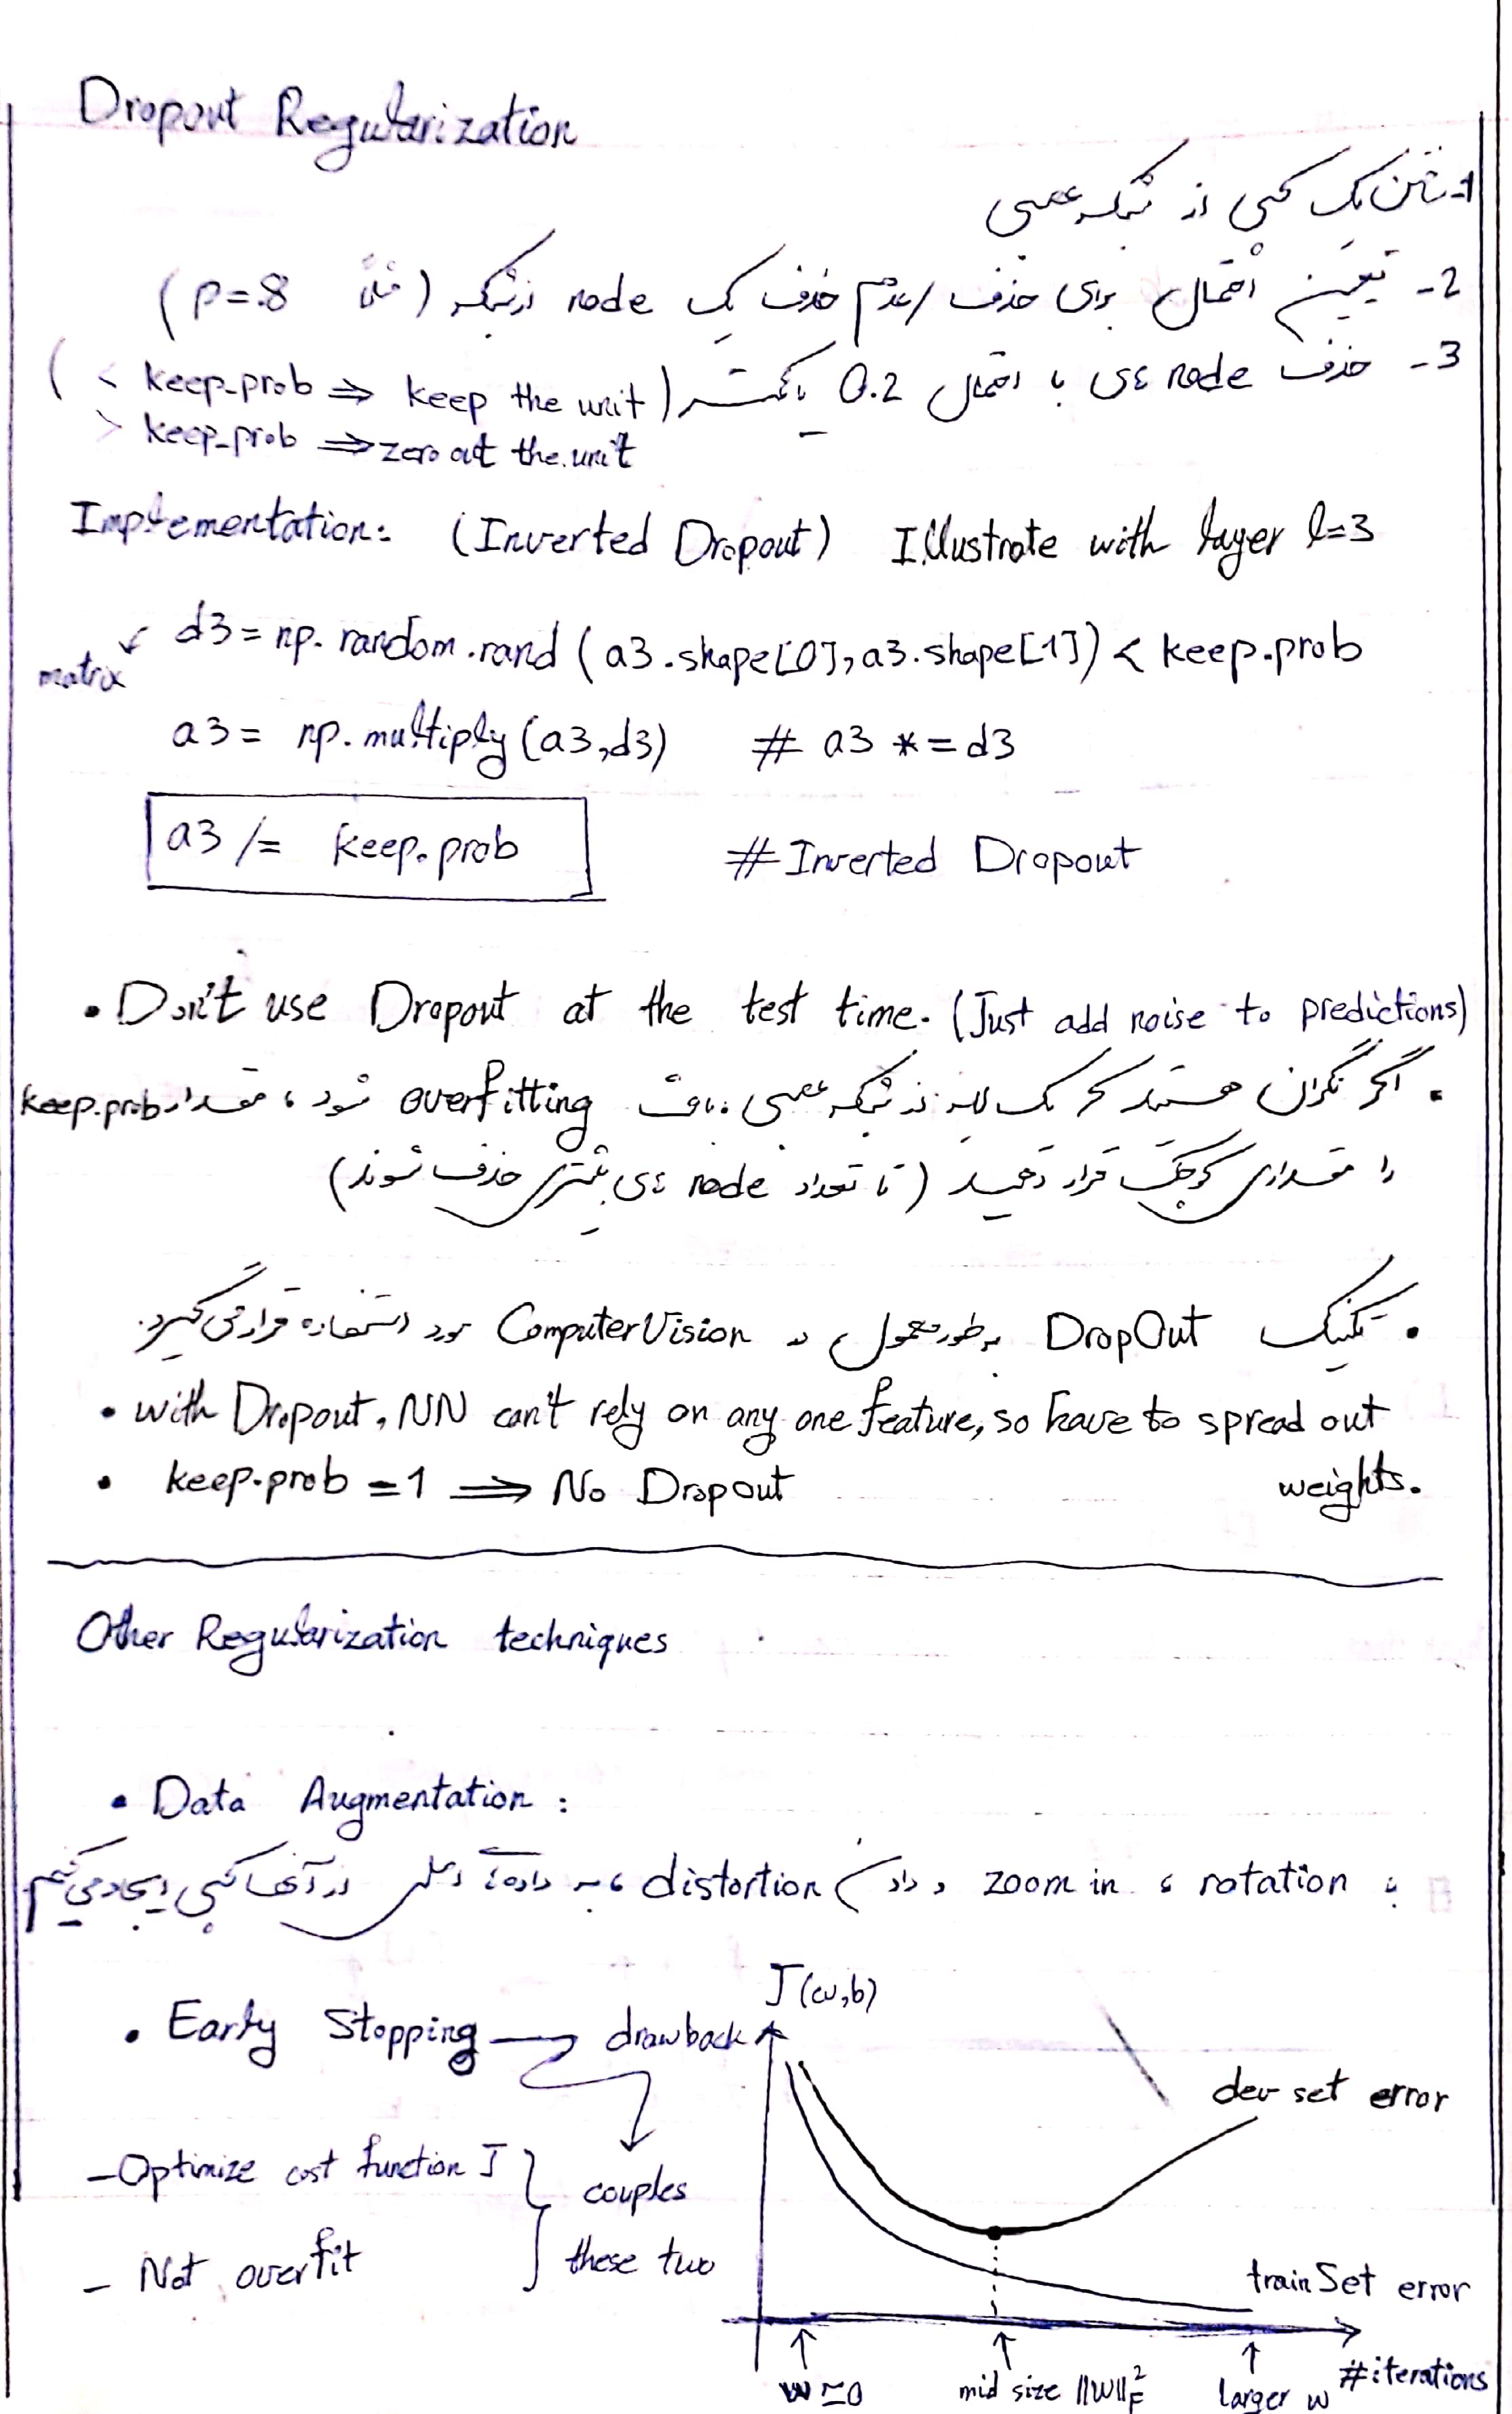 Dropout Regularization
1- داشتن یک کپی از شبکه عصبی
2- تعیین احتمال برای حذف / عدم حذف یک node از شبکه (مثلاً p=.8)
3- حذف node های با احتمال 0.2 یا کمتر ( < keep_prob ⇒ keep the unit )
> keep_prob ⇒ zero out the unit
Implementation: (Inverted Dropout) Illustrate with layer l=3
matrix ↙ d3 = np.random.rand(a3.shape[0],a3.shape[1]) < keep.prob
a3 = np.multiply(a3,d3) # a3 *= d3
a3 /= keep.prob # Inverted Dropout
• Don't use Dropout at the test time. (Just add noise to predictions)
• اگر نگران هستید که یک لایه از شبکه عصبی باعث overfitting شود، مقدار keep.prob
را مقداری کوچک قرار دهید (تا تعداد node های بیشتری حذف شوند)
• تکنیک DropOut به طور معمول در ComputerVision مورد استفاده قرار می گیرد.
• with Dropout, NN can't rely on any one feature, so have to spread out
weights.
• keep.prob = 1 ⟹ No Dropout
Other Regularization techniques
• Data Augmentation :
با rotation ، zoom in و دادن distortion ، به داده های اصلی از آنها کپی ایجاد می کنیم
• Early Stopping → drawback
- Optimize cost function J
- Not overfit
couples
these two
J(w,b)
dev set error
trainSet error
#iterations
w≃0
mid size ||W||²_F
larger w